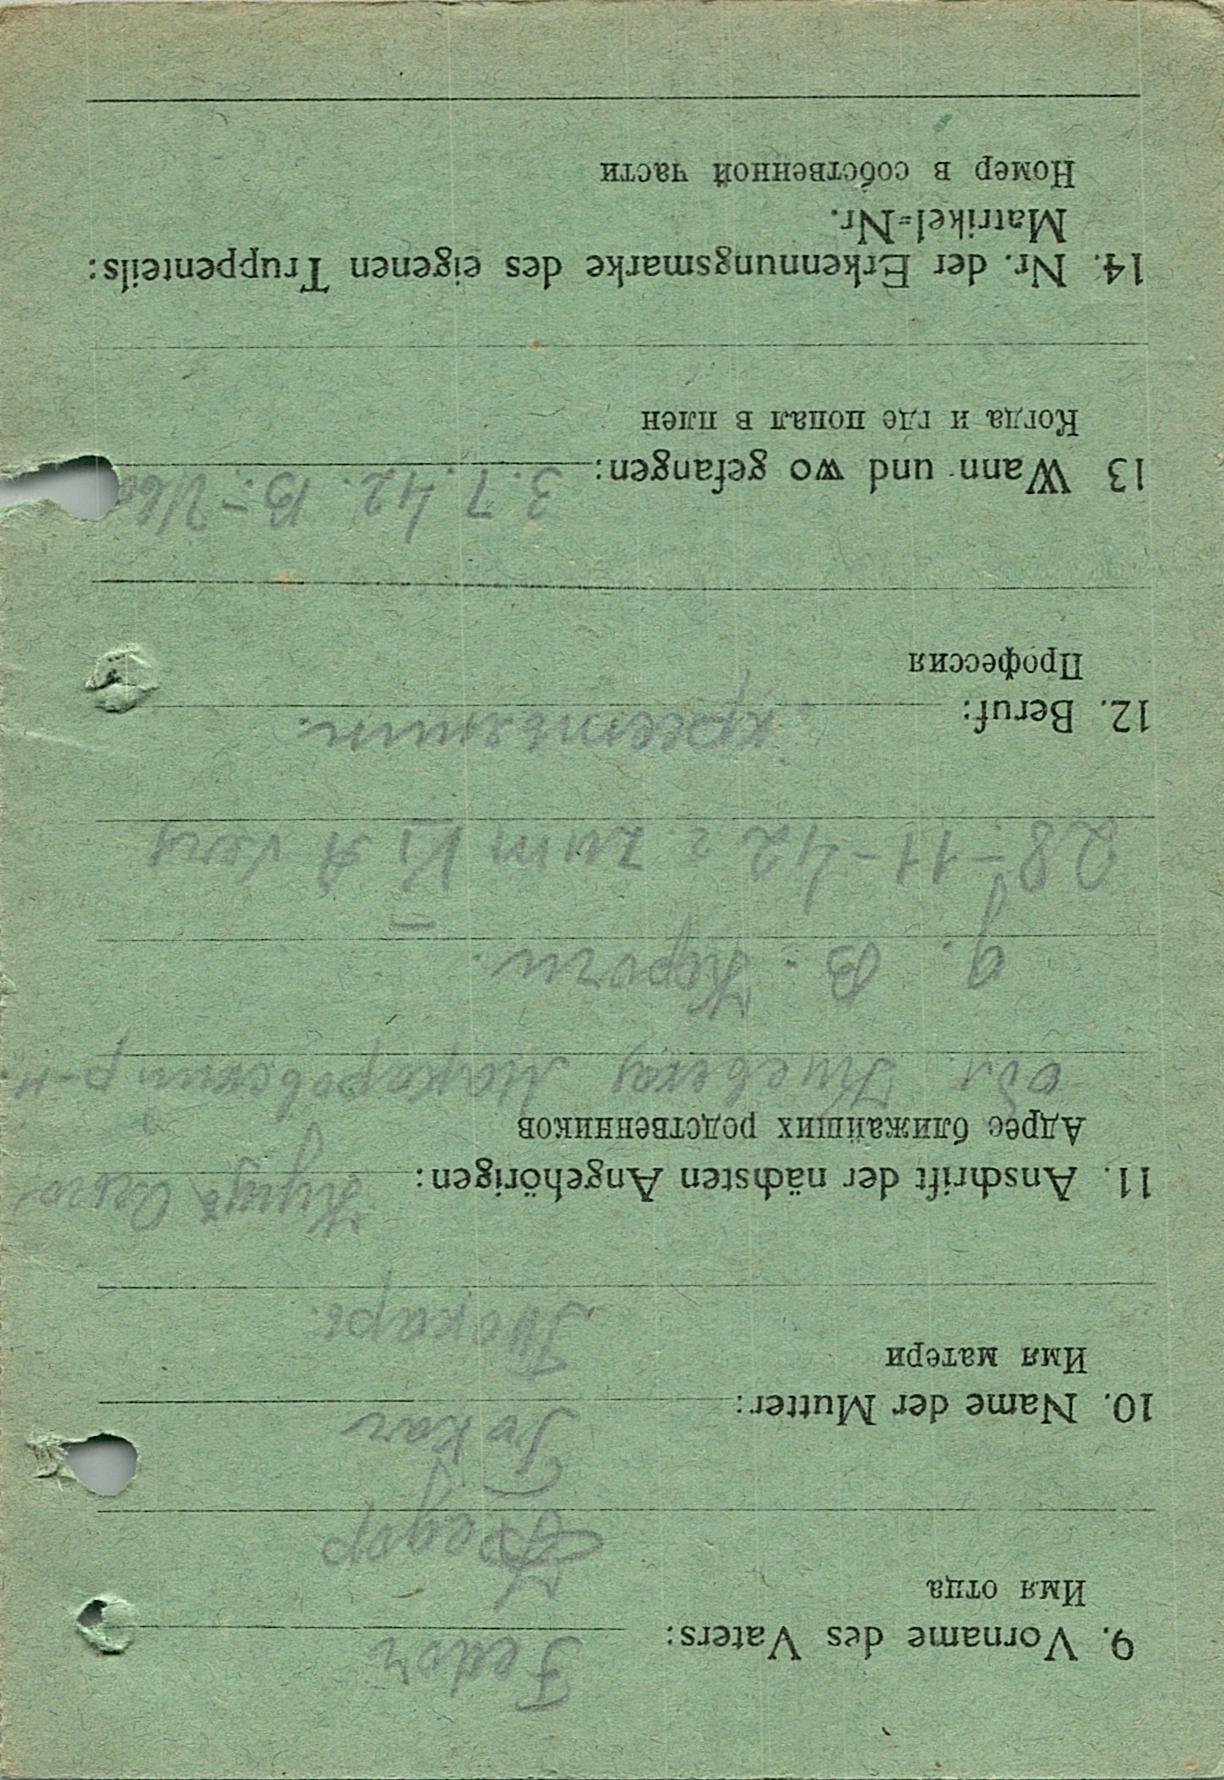 9. Vorname des Vaters: Fedor
Имя отца
Федор
10. Name der Mutter: Tokar
Имя матери
Токарь.
11. Anschrift der nächsten Angehörigen:
Адрес ближайших родственников
обл. Киевская Макаровский р-н.
д. В.
28-11-42 г. zum VI A
12. Beruf: крестьянин.
Профессия
13 Wann und wo gefangen: 3. 7. 42. В.-
Когда и где попал в плен
14. Nr. der Erkennungsmarke des eigenen Truppenteils:
Matrikel=Nr.
Номер в собственной части